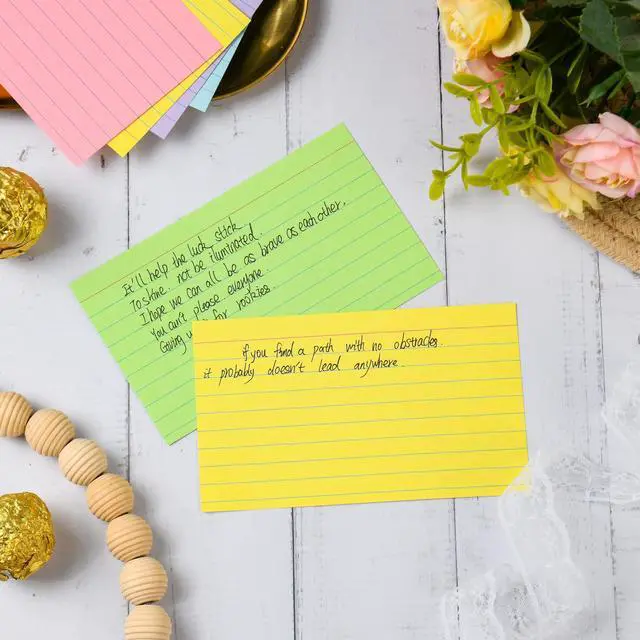 It'll help the luck stick
To shine. not be iluminated.
I hope we can all be as brave as each other.
You can't please everyone.
Giving u for rookies
if you find a path with no obstacles.
it probably doesn't lead anywhere.